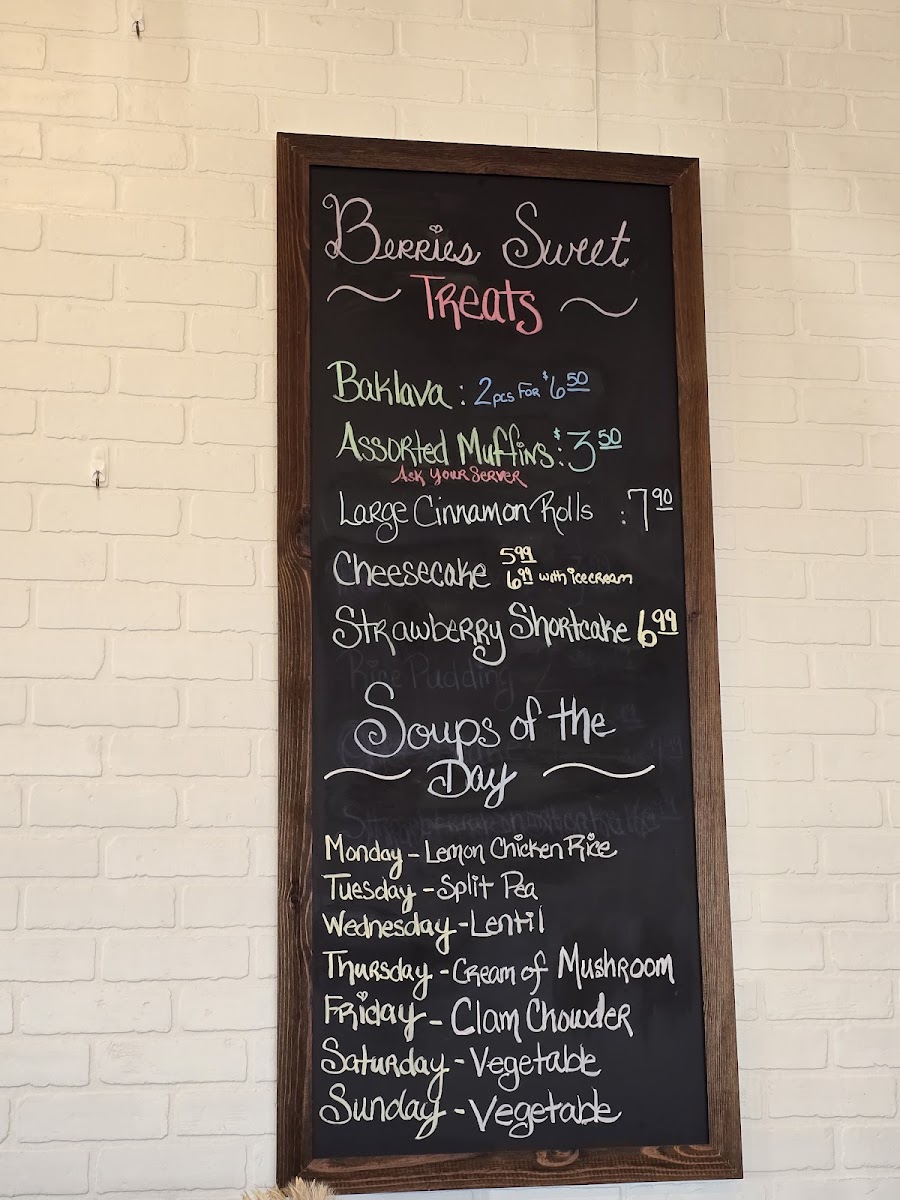 Berries Sweet
~ Treats ~
Baklava : 2 pcs for $6.50
Assorted Muffins : $3.50
Ask your server
Large Cinnamon Rolls : 7.90
Cheesecake 5.99
6.99 with ice cream
Strawberry Shortcake 6.99
Rice Pudding
Soups of the
~ Day ~
Strawberry Shortcake
Monday - Lemon Chicken Rice
Tuesday - Split Pea
Wednesday - Lentil
Thursday - Cream of Mushroom
Friday - Clam Chowder
Saturday - Vegetable
Sunday - Vegetable